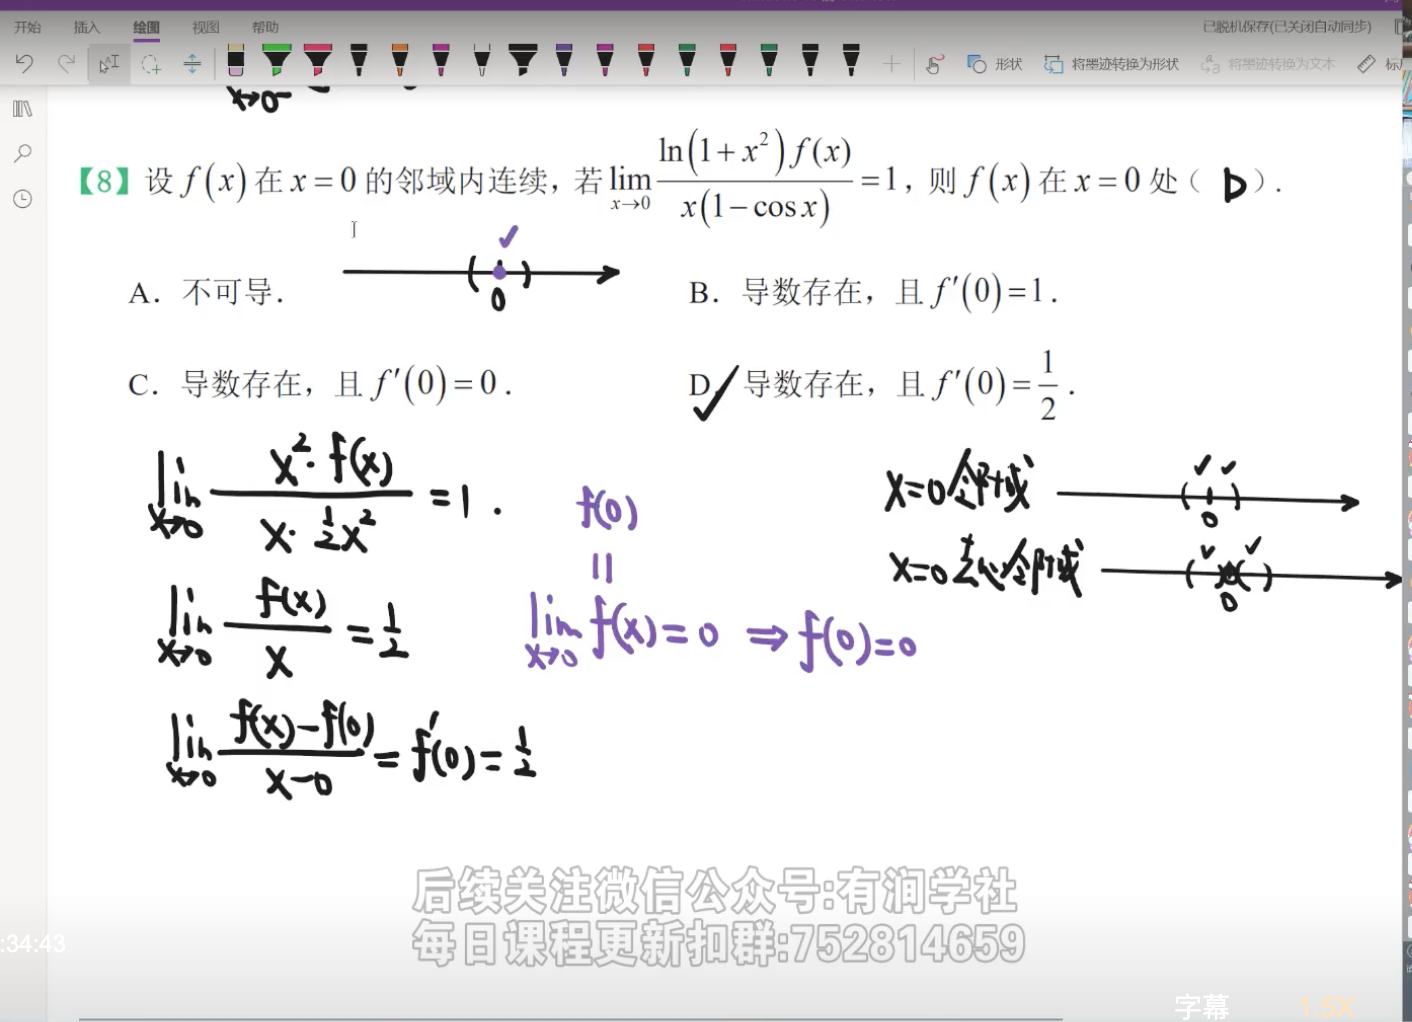 开始 插入 绘图 视图 帮助 已脱机保存(已关闭自动同步)
形状 将墨迹转换为形状 将墨迹转换为文本
x→0⁻
【8】设 f(x) 在 x=0 的邻域内连续，若 lim_{x→0} ln(1+x²)f(x) / x(1−cosx) =1，则 f(x) 在 x=0 处（ D ）.
0
A．不可导． B．导数存在，且 f′(0)=1．
C．导数存在，且 f′(0)=0． D．导数存在，且 f′(0)=1/2．
lim_{x→0} x²·f(x) / x·½x² =1.
f(0)
||
lim_{x→0} f(x)=0 ⇒ f(0)=0
x=0邻域 0
x=0去心邻域 0
lim_{x→0} f(x)/x = 1/2
lim_{x→0} f(x)−f(0) / x−0 = f′(0) = 1/2
后续关注微信公众号:有润学社
每日课程更新扣群:752814659
:34:43
字幕 1.5X